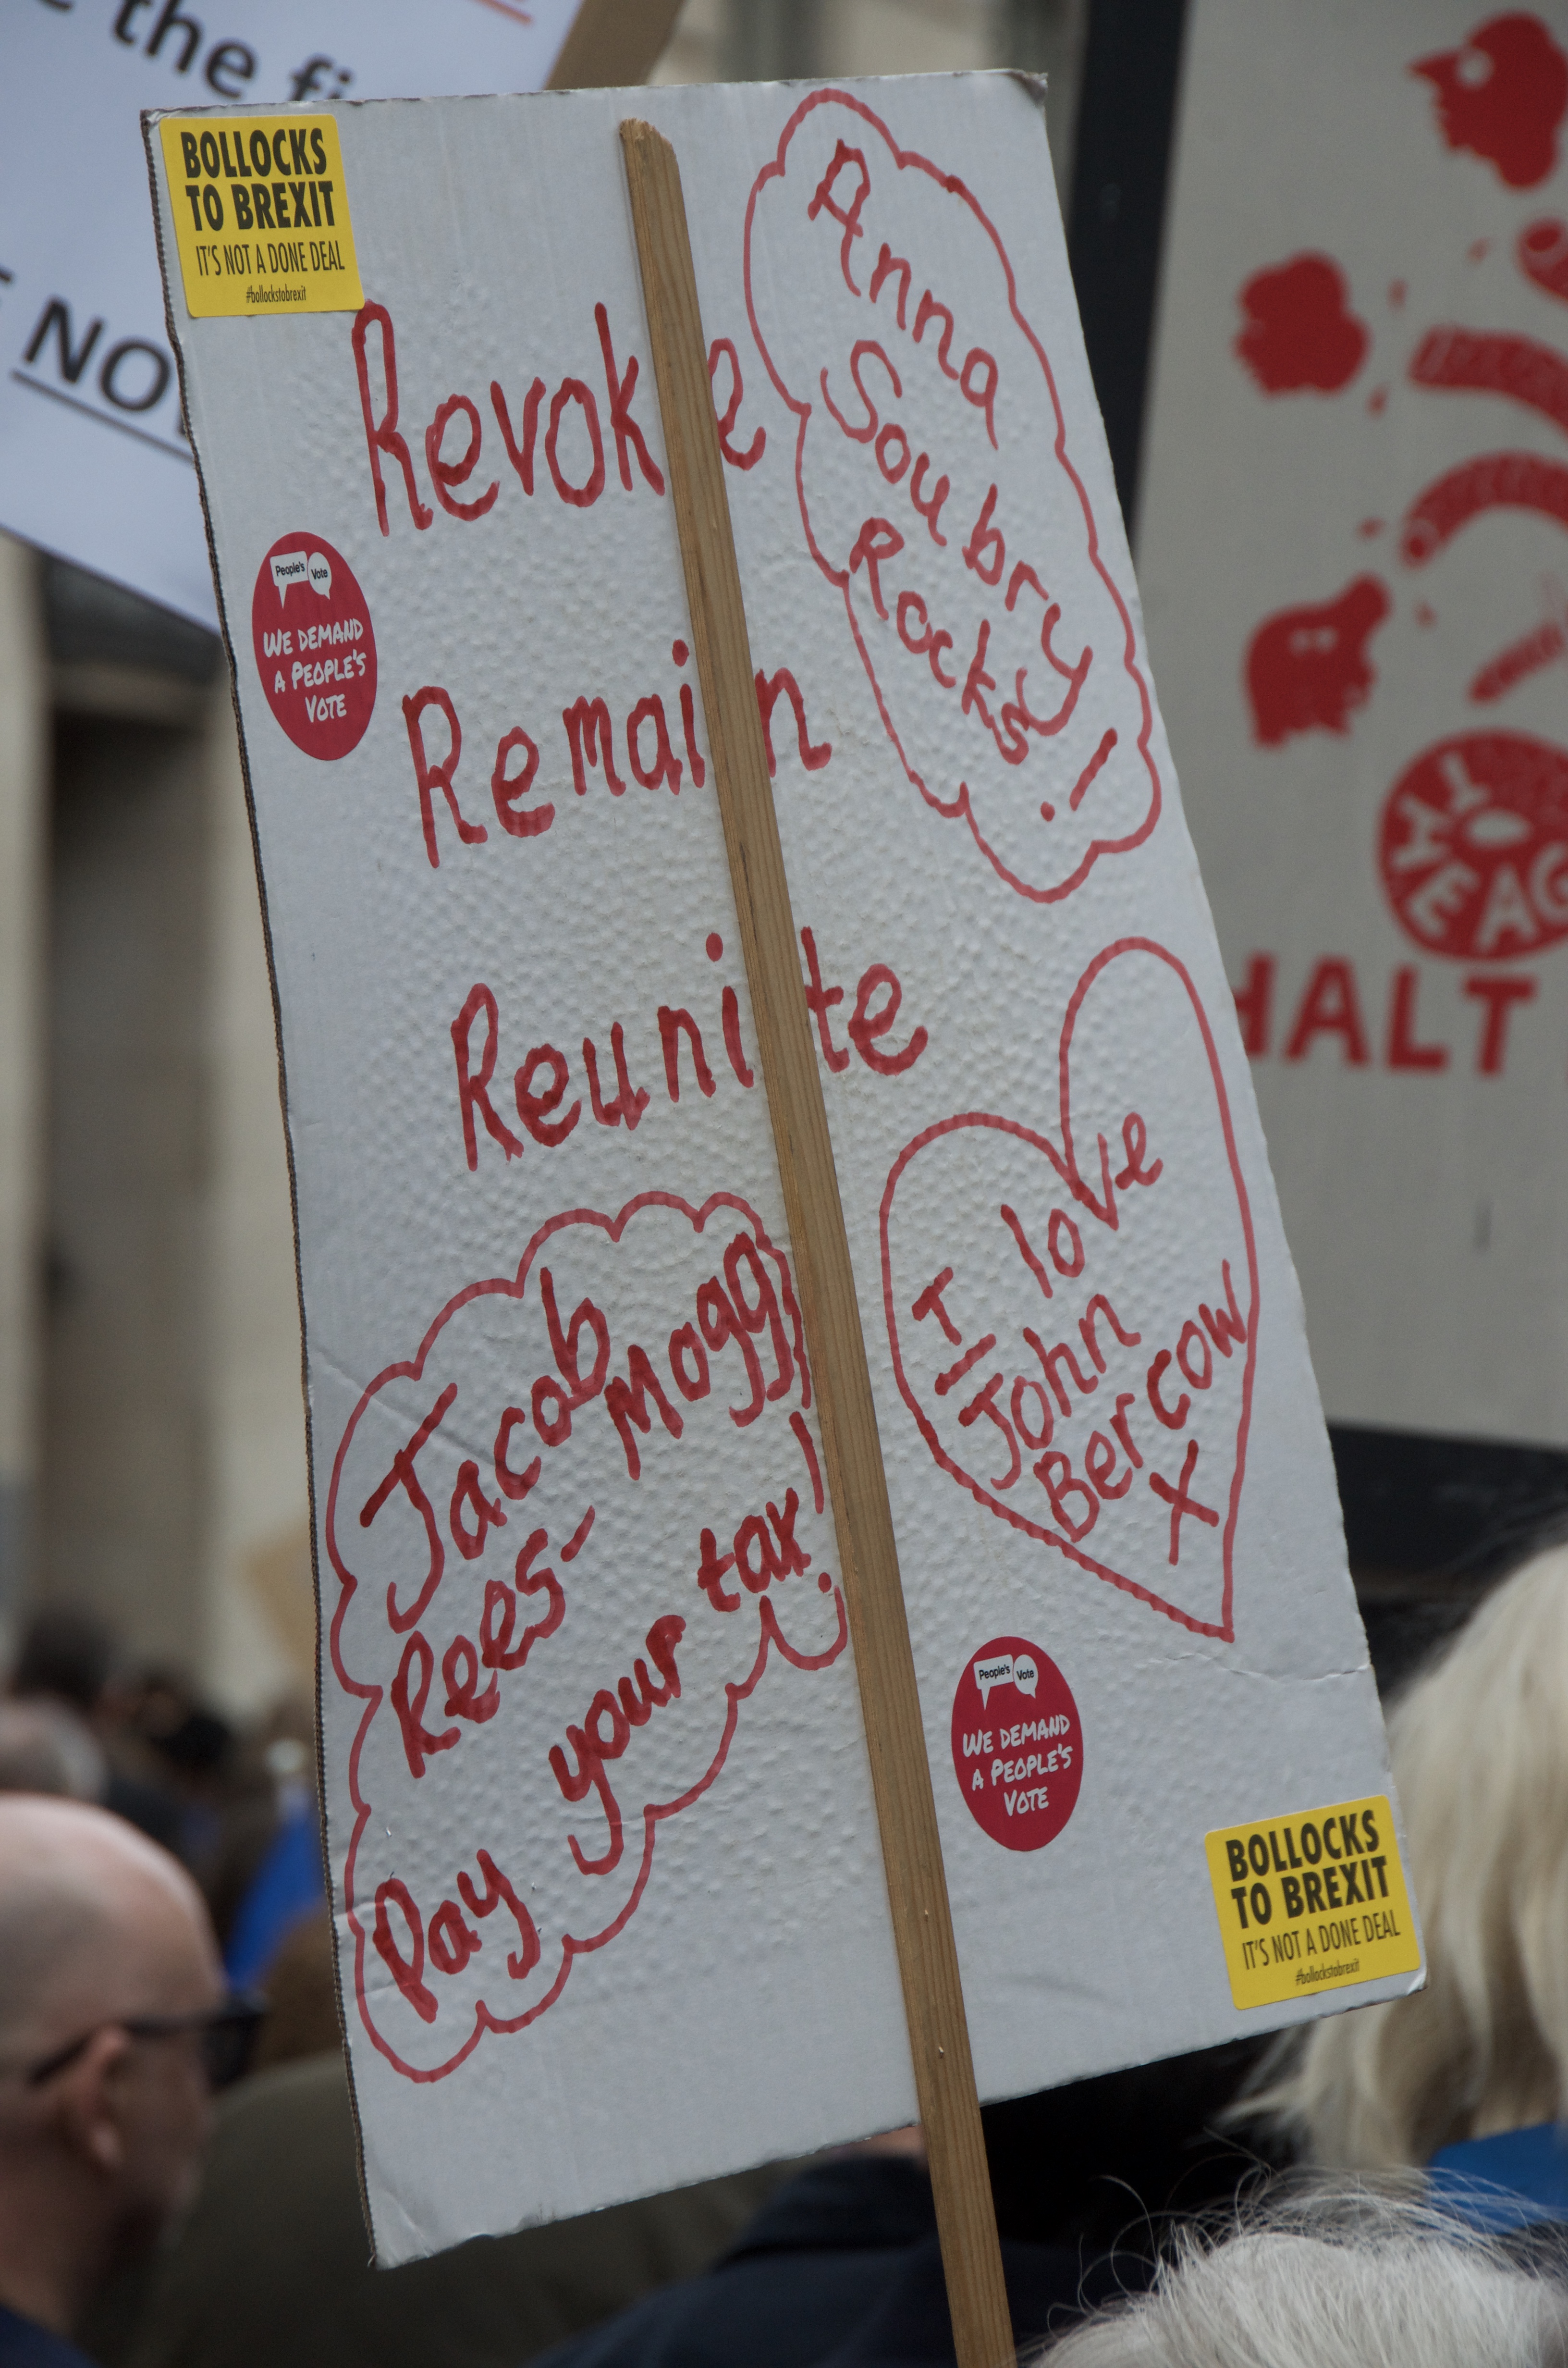 the fi
BOLLOCKS
TO BREXIT
IT'S NOT A DONE DEAL
#bollockstobrexit
Revoke
Remain
Reunite
People's Vote
WE DEMAND
A PEOPLE'S
VOTE
Anna
Soubry
Rocks!
I love
John
Bercow
X
Jacob
Rees-Mogg
Pay your tax!
People's Vote
WE DEMAND
A PEOPLE'S
VOTE
BOLLOCKS
TO BREXIT
IT'S NOT A DONE DEAL
#bollockstobrexit
HALT